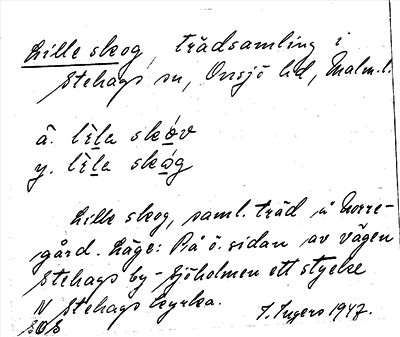 Lille skog, trädsamling i
Stehags sn, Onsjö hd, Malm. l.
ä. lìla skóv
y. lìla skóg
Lille skog, saml. träd å Norre-
gård. Läge: På ö. sidan av vägen
Stehags by - Sjöholmen ett stycke
N Stehags kyrka.
SOS
I. Ingers 1947.